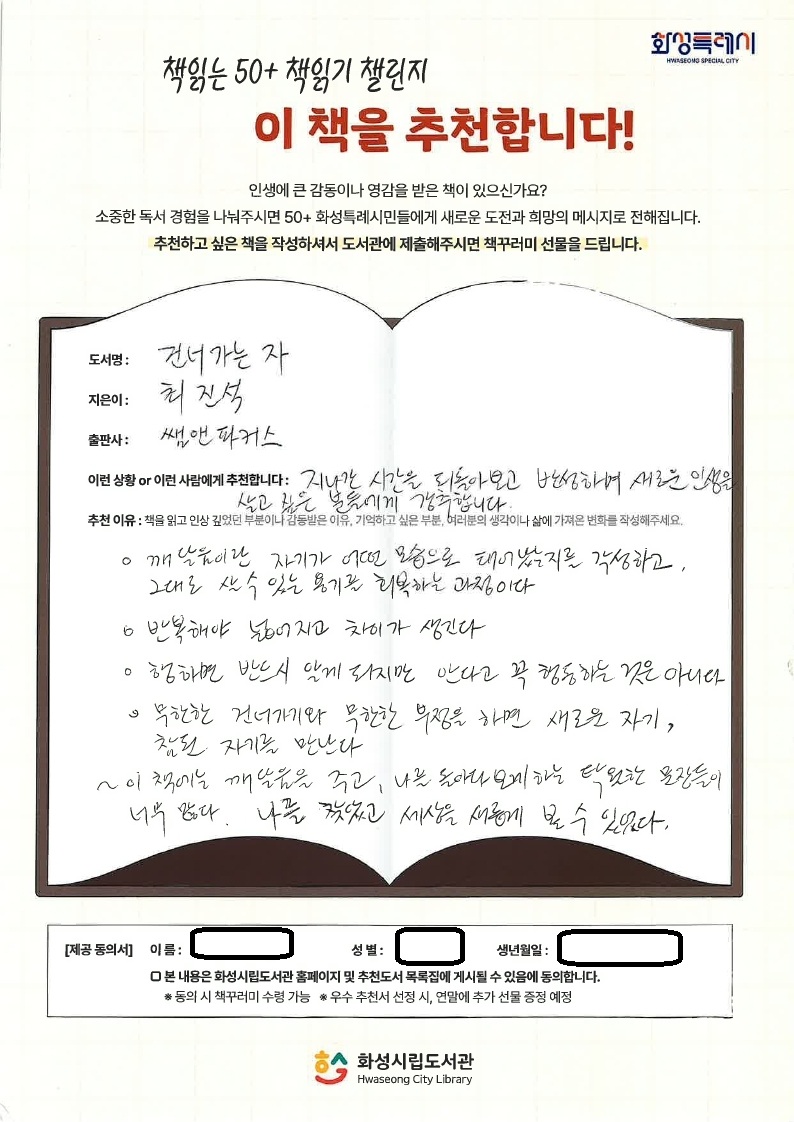 화성특례시
HWASEONG SPECIAL CITY
책읽는 50+ 책읽기 챌린지
이 책을 추천합니다!
인생에 큰 감동이나 영감을 받은 책이 있으신가요?
소중한 독서 경험을 나눠주시면 50+ 화성특례시민들에게 새로운 도전과 희망의 메시지로 전해집니다.
추천하고 싶은 책을 작성하셔서 도서관에 제출해주시면 책꾸러미 선물을 드립니다.
도서명 : 건너가는 자
지은이 : 최진석
출판사 : 쌤앤파커스
이런 상황 or 이런 사람에게 추천합니다 : 지나간 시간을 되돌아보고 반성하며 새로운 인생을
살고 싶은 분들에게 강추합니다.
추천 이유 : 책을 읽고 인상 깊었던 부분이나 감동받은 이유, 기억하고 싶은 부분, 여러분의 생각이나 삶에 가져온 변화를 작성해주세요.
○ 깨달음이란 자기가 어떤 모습으로 태어났는지를 각성하고,
그대로 살 수 있는 용기를 회복하는 과정이다
○ 반복해야 넓어지고 차이가 생긴다
○ 행하면 반드시 알게 되지만 안다고 꼭 행동하는 것은 아니다
○ 무한한 건너가기와 무한한 부정을 하면 새로운 자기,
참된 자기를 만난다
~ 이 책에는 깨달음을 주고, 나를 돌아다보게하는 탁월한 문장들이
너무 많다. 나를 찾았고 세상을 새롭게 볼 수 있었다.
[제공 동의서] 이 름 : 성 별 : 생년월일 :
□ 본 내용은 화성시립도서관 홈페이지 및 추천도서 목록집에 게시될 수 있음에 동의합니다.
※ 동의 시 책꾸러미 수령 가능 ※ 우수 추천서 선정 시, 연말에 추가 선물 증정 예정
화성시립도서관
Hwaseong City Library